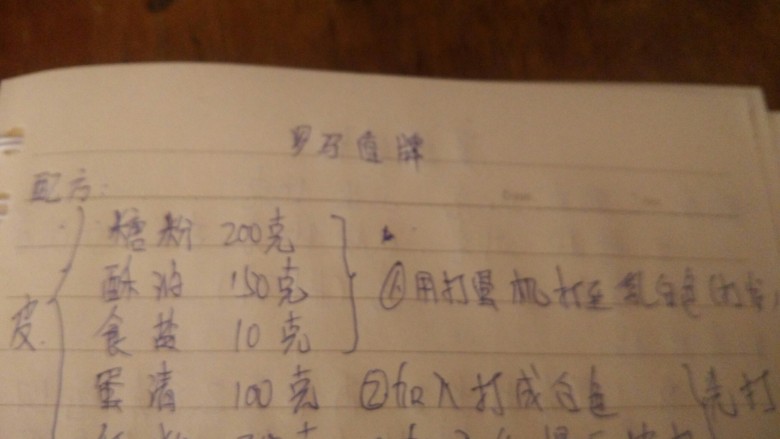 罗马盾牌
配方:
糖粉 200克
酥油 150克 ①用打蛋机打至乳白色(打发
皮 食盐 10克
蛋清 100克 ②加入打成白色 先打